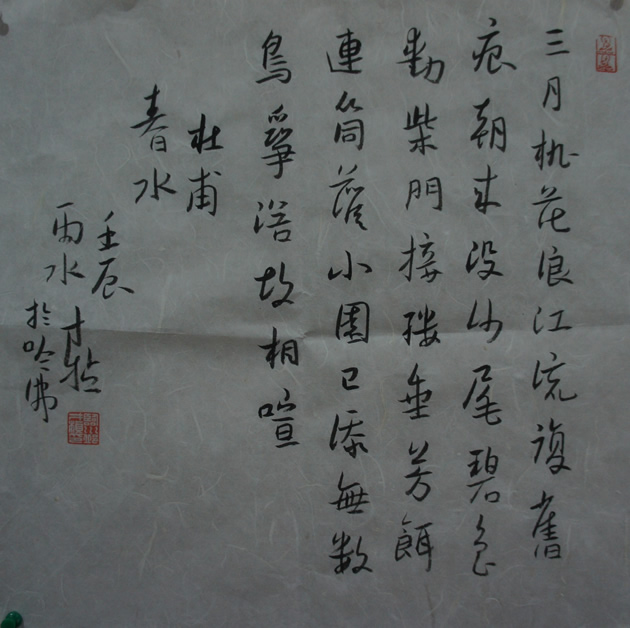 三月桃花浪江流復舊
痕朝来没沙尾碧色
動柴門接縷垂芳餌
連筒灌小園已添無数
鳥爭浴故相喧
杜甫
春水
壬辰
雨水
於哈佛